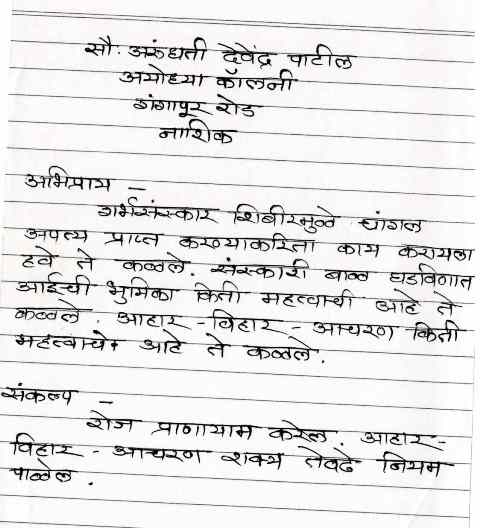 सौ. अरुंधती देवेंद्र पाटील
अयोध्या कॉलनी
गंगापूर रोड
नाशिक
अभिप्राय -
गर्भसंस्कार शिबीरामुळे चांगल
अपत्य प्राप्त करण्याकरिता काय करायला
हवे ते कळले. संस्कारी बाळ घडविणात
आईची भुमिका किती महत्वाची आहे ते
कळले. आहार - विहार - आचरण किती
महत्वाचे आहे ते कळले.
संकल्प -
रोज प्राणायाम करेल. आहार -
विहार - आचरण शक्य तेवढे नियम
पाळेल.